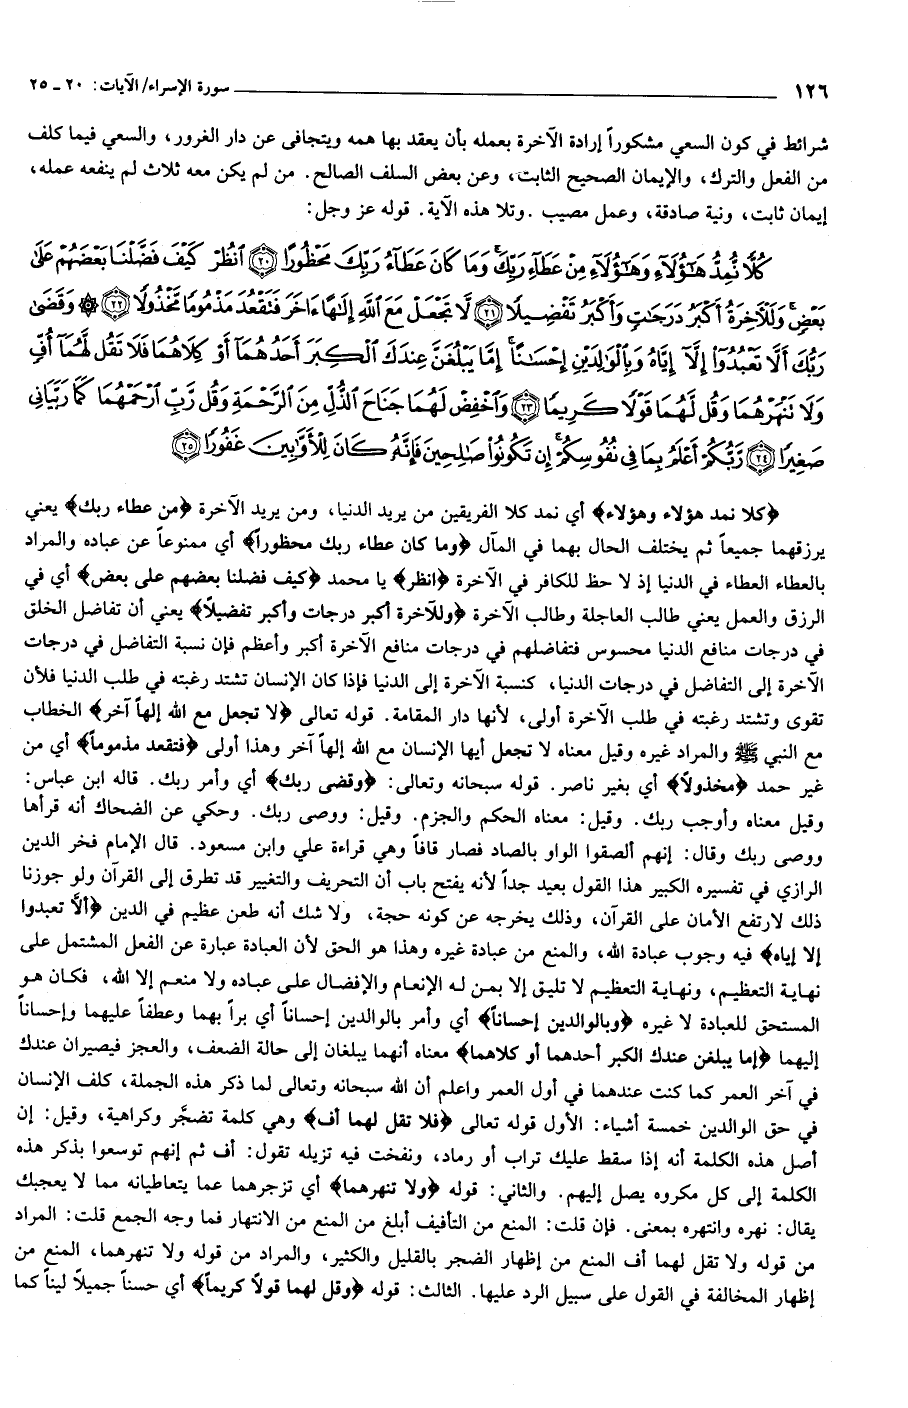 ١٢٦ سورة الإسراء/ الآيات: ٢٠ ـ ٢٥
شرائط في كون السعي مشكوراً إرادة الآخرة بعمله بأن يعقد بها همه ويتجافى عن دار الغرور، والسعي فيما كلف
من الفعل والترك، والإيمان الصحيح الثابت، وعن بعض السلف الصالح. من لم يكن معه ثلاث لم ينفعه عمله،
إيمان ثابت، ونية صادقة، وعمل مصيب .وتلا هذه الآية. قوله عز وجل:
كُلًّا نُّمِدُّ هَٰٓؤُلَآءِ وَهَٰٓؤُلَآءِ مِنْ عَطَآءِ رَبِّكَ ۚ وَمَا كَانَ عَطَآءُ رَبِّكَ مَحْظُورًا ﴿٢٠﴾ ٱنظُرْ كَيْفَ فَضَّلْنَا بَعْضَهُمْ عَلَىٰ
بَعْضٍ ۚ وَلَلْـَٔاخِرَةُ أَكْبَرُ دَرَجَٰتٍ وَأَكْبَرُ تَفْضِيلًا ﴿٢١﴾ لَّا تَجْعَلْ مَعَ ٱللَّهِ إِلَٰهًا ءَاخَرَ فَتَقْعُدَ مَذْمُومًا مَّخْذُولًا ﴿٢٢﴾ ۞ وَقَضَىٰ
رَبُّكَ أَلَّا تَعْبُدُوٓا۟ إِلَّآ إِيَّاهُ وَبِٱلْوَٰلِدَيْنِ إِحْسَٰنًا ۚ إِمَّا يَبْلُغَنَّ عِندَكَ ٱلْكِبَرَ أَحَدُهُمَآ أَوْ كِلَاهُمَا فَلَا تَقُل لَّهُمَآ أُفٍّ
وَلَا نَنْهَرْهُمَا وَقُل لَّهُمَا قَوْلًا كَرِيمًا ﴿٢٣﴾ وَٱخْفِضْ لَهُمَا جَنَاحَ ٱلذُّلِّ مِنَ ٱلرَّحْمَةِ وَقُل رَّبِّ ٱرْحَمْهُمَا كَمَا رَبَّيَانِى
صَغِيرًا ﴿٢٤﴾ رَّبُّكُمْ أَعْلَمُ بِمَا فِى نُفُوسِكُمْ ۚ إِن تَكُونُوا۟ صَٰلِحِينَ فَإِنَّهُۥ كَانَ لِلْأَوَّٰبِينَ غَفُورًا ﴿٢٥﴾
﴿كلا نمد هؤلاء وهؤلاء﴾ أي نمد كلا الفريقين من يريد الدنيا، ومن يريد الآخرة ﴿من عطاء ربك﴾ يعني
يرزقهما جميعاً ثم يختلف الحال بهما في المآل ﴿وما كان عطاء ربك محظوراً﴾ أي ممنوعاً عن عباده والمراد
بالعطاء العطاء في الدنيا إذ لا حظ للكافر في الآخرة ﴿انظر﴾ يا محمد ﴿كيف فضلنا بعضهم على بعض﴾ أي في
الرزق والعمل يعني طالب العاجلة وطالب الآخرة ﴿وللآخرة أكبر درجات وأكبر تفضيلاً﴾ يعني أن تفاضل الخلق
في درجات منافع الدنيا محسوس فتفاضلهم في درجات منافع الآخرة أكبر وأعظم فإن نسبة التفاضل في درجات
الآخرة إلى التفاضل في درجات الدنيا، كنسبة الآخرة إلى الدنيا فإذا كان الإنسان تشتد رغبته في طلب الدنيا فلأن
تقوى وتشتد رغبته في طلب الآخرة أولى، لأنها دار المقامة. قوله تعالى ﴿لا تجعل مع الله إلهاً آخر﴾ الخطاب
مع النبي ﷺ والمراد غيره وقيل معناه لا تجعل أيها الإنسان مع الله إلهاً آخر وهذا أولى ﴿فتقعد مذموماً﴾ أي من
غير حمد ﴿مخذولاً﴾ أي بغير ناصر. قوله سبحانه وتعالى: ﴿وقضى ربك﴾ أي وأمر ربك. قاله ابن عباس:
وقيل معناه وأوجب ربك. وقيل: معناه الحكم والجزم. وقيل: ووصى ربك. وحكي عن الضحاك أنه قرأها
ووصى ربك وقال: إنهم ألصقوا الواو بالصاد فصار قافاً وهي قراءة علي وابن مسعود. قال الإمام فخر الدين
الرازي في تفسيره الكبير هذا القول بعيد جداً لأنه يفتح باب أن التحريف والتغيير قد تطرق إلى القرآن ولو جوزنا
ذلك لارتفع الأمان على القرآن، وذلك يخرجه عن كونه حجة، ولا شك أنه طعن عظيم في الدين ﴿ألاَّ تعبدوا
إلا إياه﴾ فيه وجوب عبادة الله، والمنع من عبادة غيره وهذا هو الحق لأن العبادة عبارة عن الفعل المشتمل على
نهاية التعظيم، ونهاية التعظيم لا تليق إلا بمن له الإنعام والإفضال على عباده ولا منعم إلا الله، فكان هو
المستحق للعبادة لا غيره ﴿وبالوالدين إحساناً﴾ أي وأمر بالوالدين إحساناً أي براً بهما وعطفاً عليهما وإحساناً
إليهما ﴿إما يبلغن عندك الكبر أحدهما أو كلاهما﴾ معناه أنهما يبلغان إلى حالة الضعف، والعجز فيصيران عندك
في آخر العمر كما كنت عندهما في أول العمر واعلم أن الله سبحانه وتعالى لما ذكر هذه الجملة، كلف الإنسان
في حق الوالدين خمسة أشياء: الأول قوله تعالى ﴿فلا تقل لهما أف﴾ وهي كلمة تضجَّر وكراهية، وقيل: إن
أصل هذه الكلمة أنه إذا سقط عليك تراب أو رماد، ونفخت فيه تزيله تقول: أف ثم إنهم توسعوا بذكر هذه
الكلمة إلى كل مكروه يصل إليهم. والثاني: قوله ﴿ولا تنهرهما﴾ أي تزجرهما عما يتعاطيانه مما لا يعجبك
يقال: نهره وانتهره بمعنى. فإن قلت: المنع من التأفيف أبلغ من المنع من الانتهار فما وجه الجمع قلت: المراد
من قوله ولا تقل لهما أف المنع من إظهار الضجر بالقليل والكثير، والمراد من قوله ولا تنهرهما، المنع من
إظهار المخالفة في القول على سبيل الرد عليها. الثالث: قوله ﴿وقل لهما قولاً كريماً﴾ أي حسناً جميلاً ليناً كما